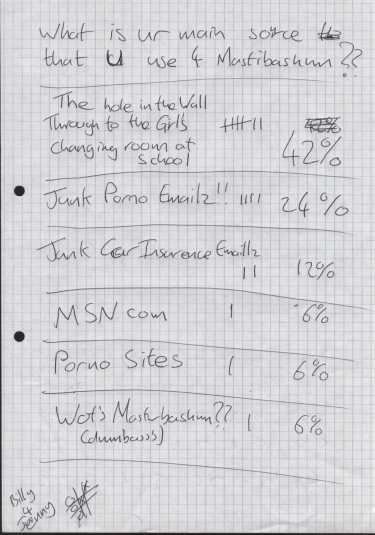 What is ur main source
that U use 4 Mastibashun??
The hole in the Wall
Through to the Girl's
changing room at
school
42%
Junk Porno Emailz!! 24%
Junk Car Insurence Emailz
12%
MSN com 6%
Porno Sites 6%
Wot's Masturbashun?? 6%
(dumbasss)
Billy
4
Jenny